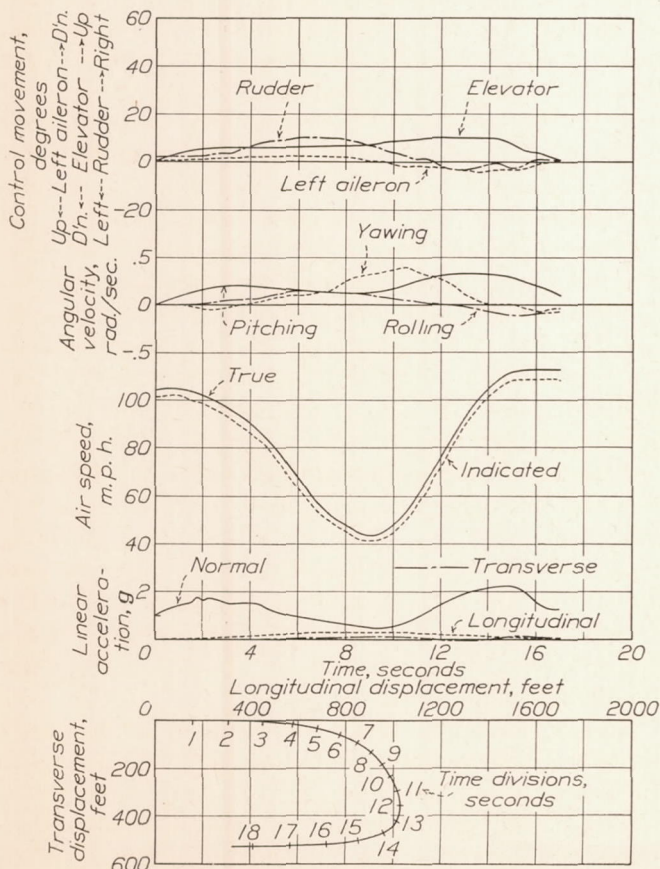 Control movement,
degrees
Up<--Left aileron-->D'n.
D'n.<-- Elevator -->Up
Left<--Rudder-->Right
60
40
20
0
-20
Rudder
Elevator
Left aileron
Angular
velocity,
rad/sec.
.5
0
.5
Yawing
Pitching
Rolling
Air speed,
m.p.h.
100
80
60
40
True
Indicated
Linear
accelera-
tion, g
2
Normal
Transverse
Longitudinal
0 4 8 12 16 20
Time, seconds
Longitudinal displacement, feet
0 400 800 1200 1600 2000
Transverse
displacement,
feet
200
400
600
1 2 3 4 5 6 7 8 9 10 11 12 13 14 15 16 17 18
Time divisions,
seconds